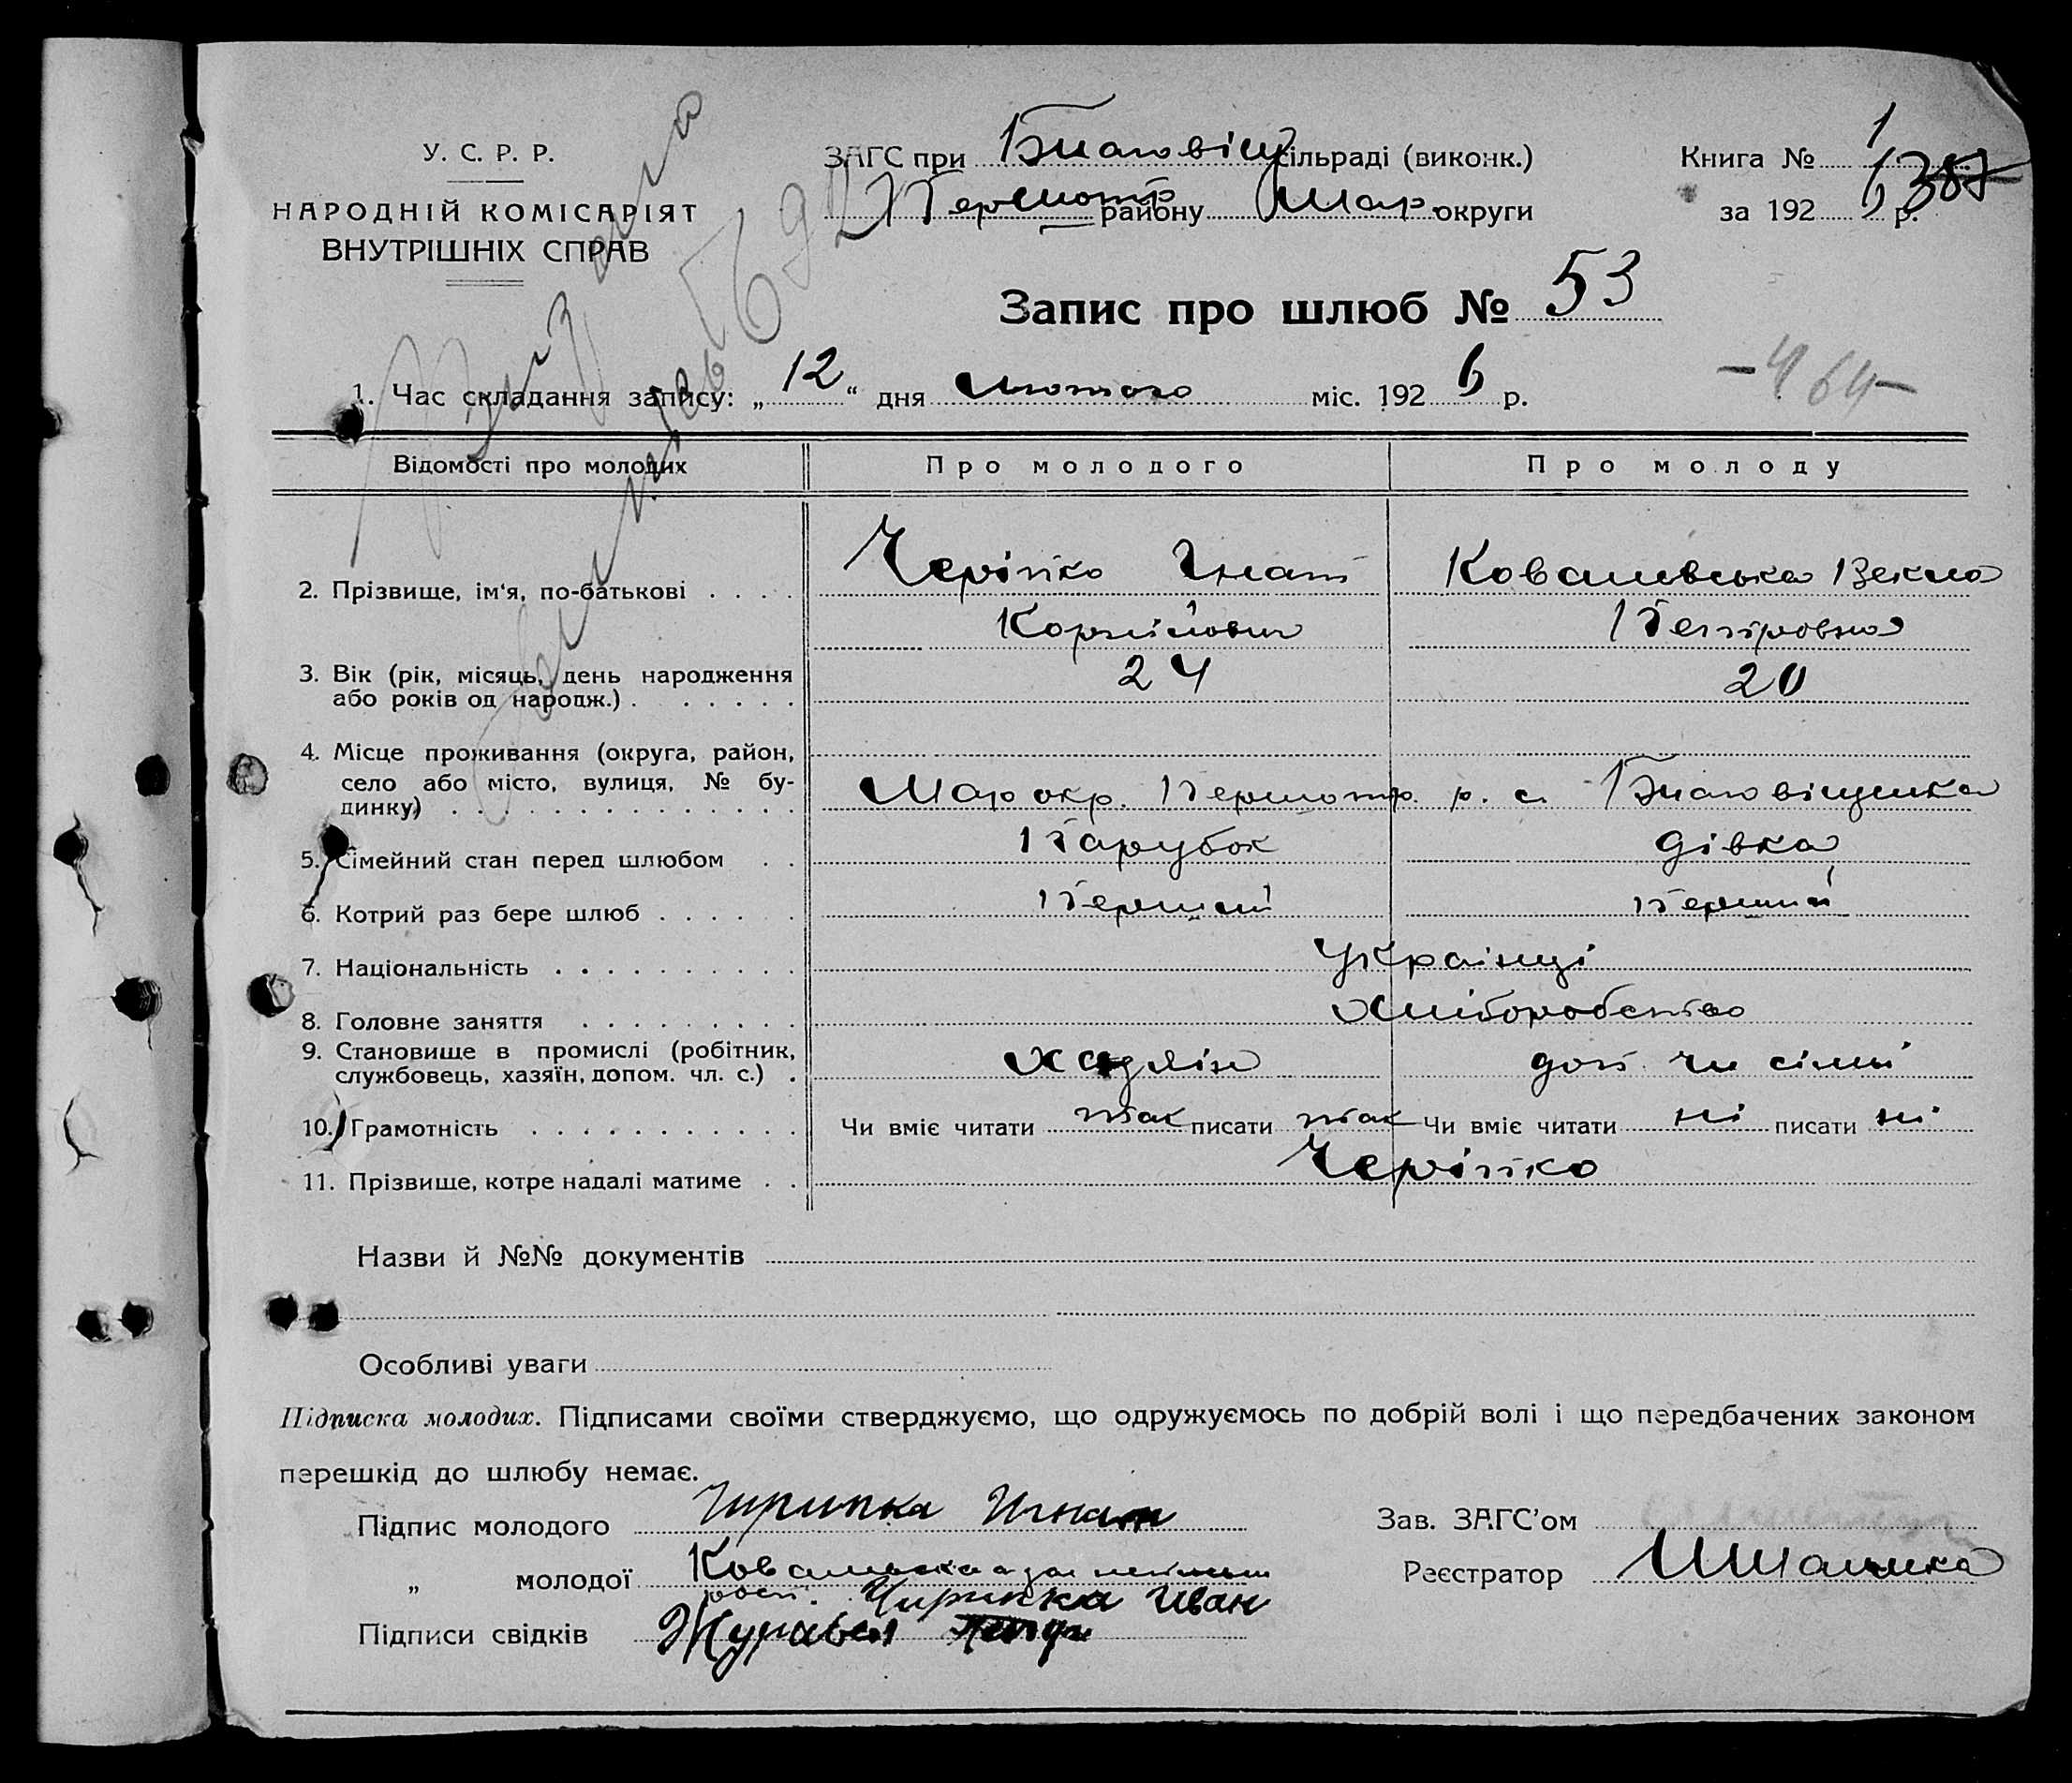 У. С. Р. Р.
НАРОДНІЙ КОМІСАРІЯТ
ВНУТРІШНІХ СПРАВ
ЗАГС при Благовіщ сільраді (виконк.)
Першотр району Мар округи
Книга № 1
за 192 6 р.
387
5692
Запис про шлюб № 53
-464-
1. Час складання запису: „12“ дня лютого міс. 192 6 р.
Відомості про молодих Про молодого Про молоду
2. Прізвище, ім'я, по-батькові . . . . Черіпко Гнат Ковалевська Векла
Корнійович Петровна
3. Вік (рік, місяць, день народження 24 20
або років од народж.) . . . . . .
4. Місце проживання (округа, район,
село або місто, вулиця, № бу- Мар окр. Першотр. р. с. Благовіщенка
динку) . . . . . . . . . . . . . .
5. Сімейний стан перед шлюбом . . Парубок дівка
6. Котрий раз бере шлюб . . . . . . Перший Перший
7. Національність . . . . . . . . . . Українці
8. Головне заняття . . . . . . . . . Хліборобство
9. Становище в промислі (робітник, хазяін доп. чл сімьі
службовець, хазяїн, допом. чл. с.) .
10. Грамотність . . . . . . . . . . . Чи вміє читати так писати так Чи вміє читати ні писати ні
11. Прізвище, котре надалі матиме . . Черіпко
Назви й №№ документів
Особливі уваги
Підписка молодих. Підписами своїми стверджуємо, що одружуємось по добрій волі і що передбачених законом
перешкід до шлюбу немає.
Підпис молодого Чирипка Игнат
Зав. ЗАГС'ом
„ молодої
Реєстратор
Чирипка Иван
Підписи свідків Журавел